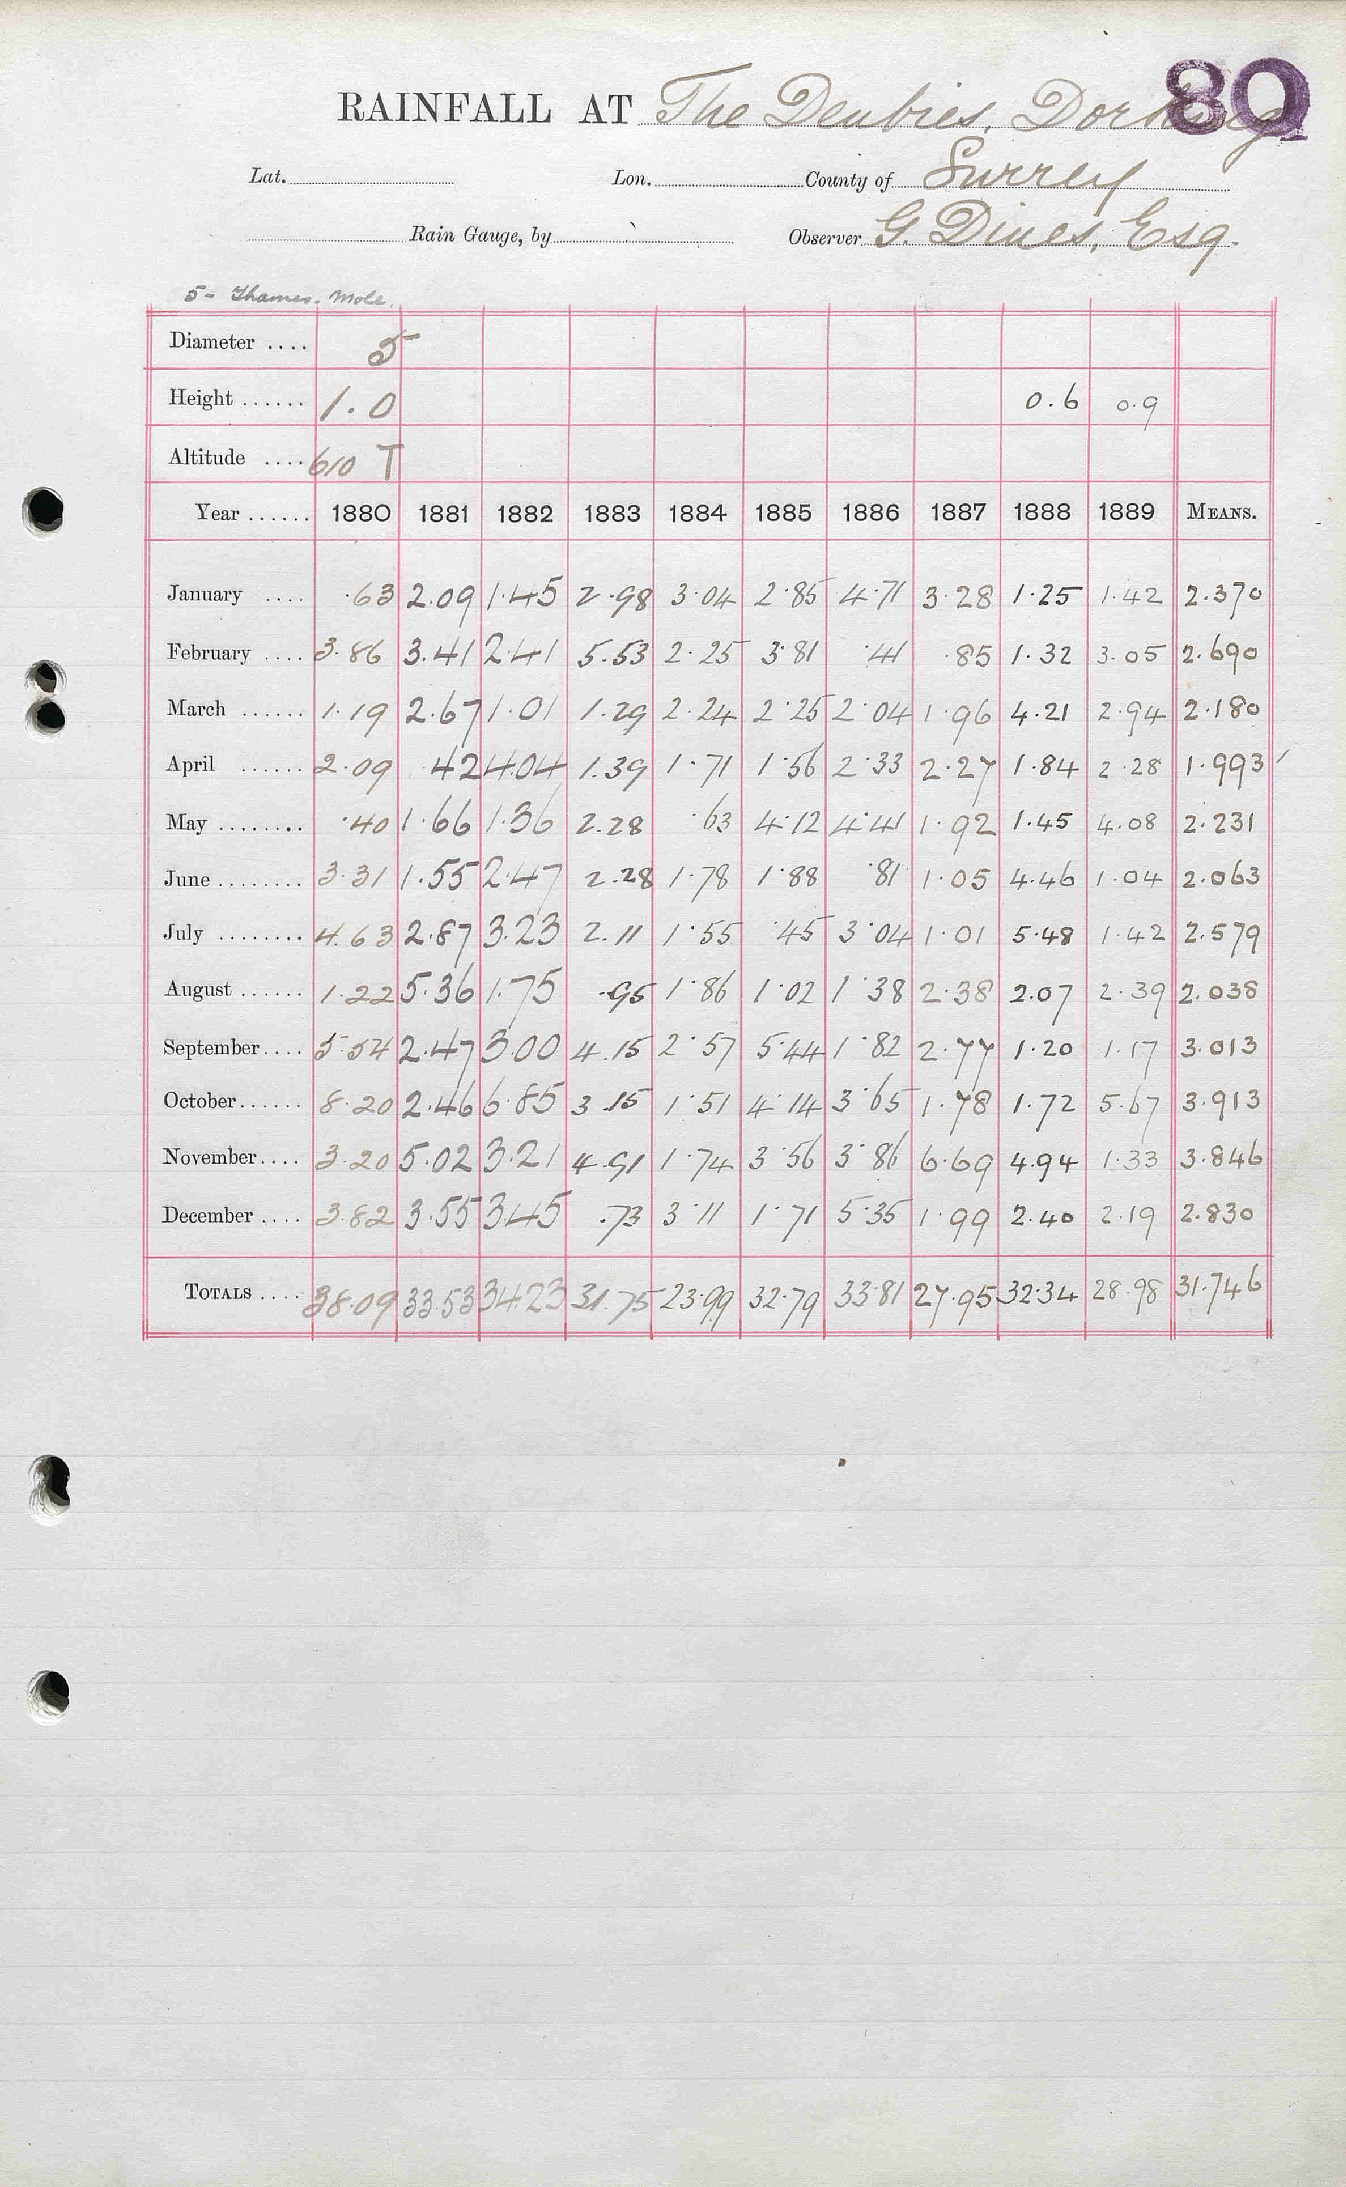 80
RAINFALL AT The Denbies, Dorking
Lat. Lon. County of Surrey
Rain Gauge, by Observer G. Dines, Esq.
5 - Thames - Mole.
Diameter .... 5
Height ...... 1.0 0.6 0.9
Altitude .... 610 T
Year ...... 1880 1881 1882 1883 1884 1885 1886 1887 1888 1889 MEANS.
January .... .63 2.09 1.45 2.98 3.04 2.85 4.71 3.28 1.25 1.42 2.370
February .... 3.86 3.41 2.41 5.53 2.25 3.81 .41 .85 1.32 3.05 2.690
March ...... 1.19 2.67 1.01 1.29 2.24 2.25 2.04 1.96 4.21 2.94 2.180
April ...... 2.09 .42 4.04 1.39 1.71 1.56 2.33 2.27 1.84 2.28 1.993
May ........ .40 1.66 1.36 2.28 .63 4.12 4.41 1.92 1.45 4.08 2.231
June ........ 3.31 1.55 2.47 2.28 1.78 1.88 .81 1.05 4.46 1.04 2.063
July ........ 4.63 2.87 3.23 2.11 1.55 .45 3.04 1.01 5.48 1.42 2.579
August ...... 1.22 5.36 1.75 .95 1.86 1.02 1.38 2.38 2.07 2.39 2.038
September .... 5.54 2.47 3.00 4.15 2.57 5.44 1.82 2.77 1.20 1.17 3.013
October ...... 8.20 2.46 6.85 3.15 1.51 4.14 3.65 1.78 1.72 5.67 3.913
November .... 3.20 5.02 3.21 4.91 1.74 3.56 3.86 6.69 4.94 1.33 3.846
December .... 3.82 3.55 3.45 .73 3.11 1.71 5.35 1.99 2.40 2.19 2.830
TOTALS .... 38.09 33.53 34.23 31.75 23.99 32.79 33.81 27.95 32.34 28.98 31.746